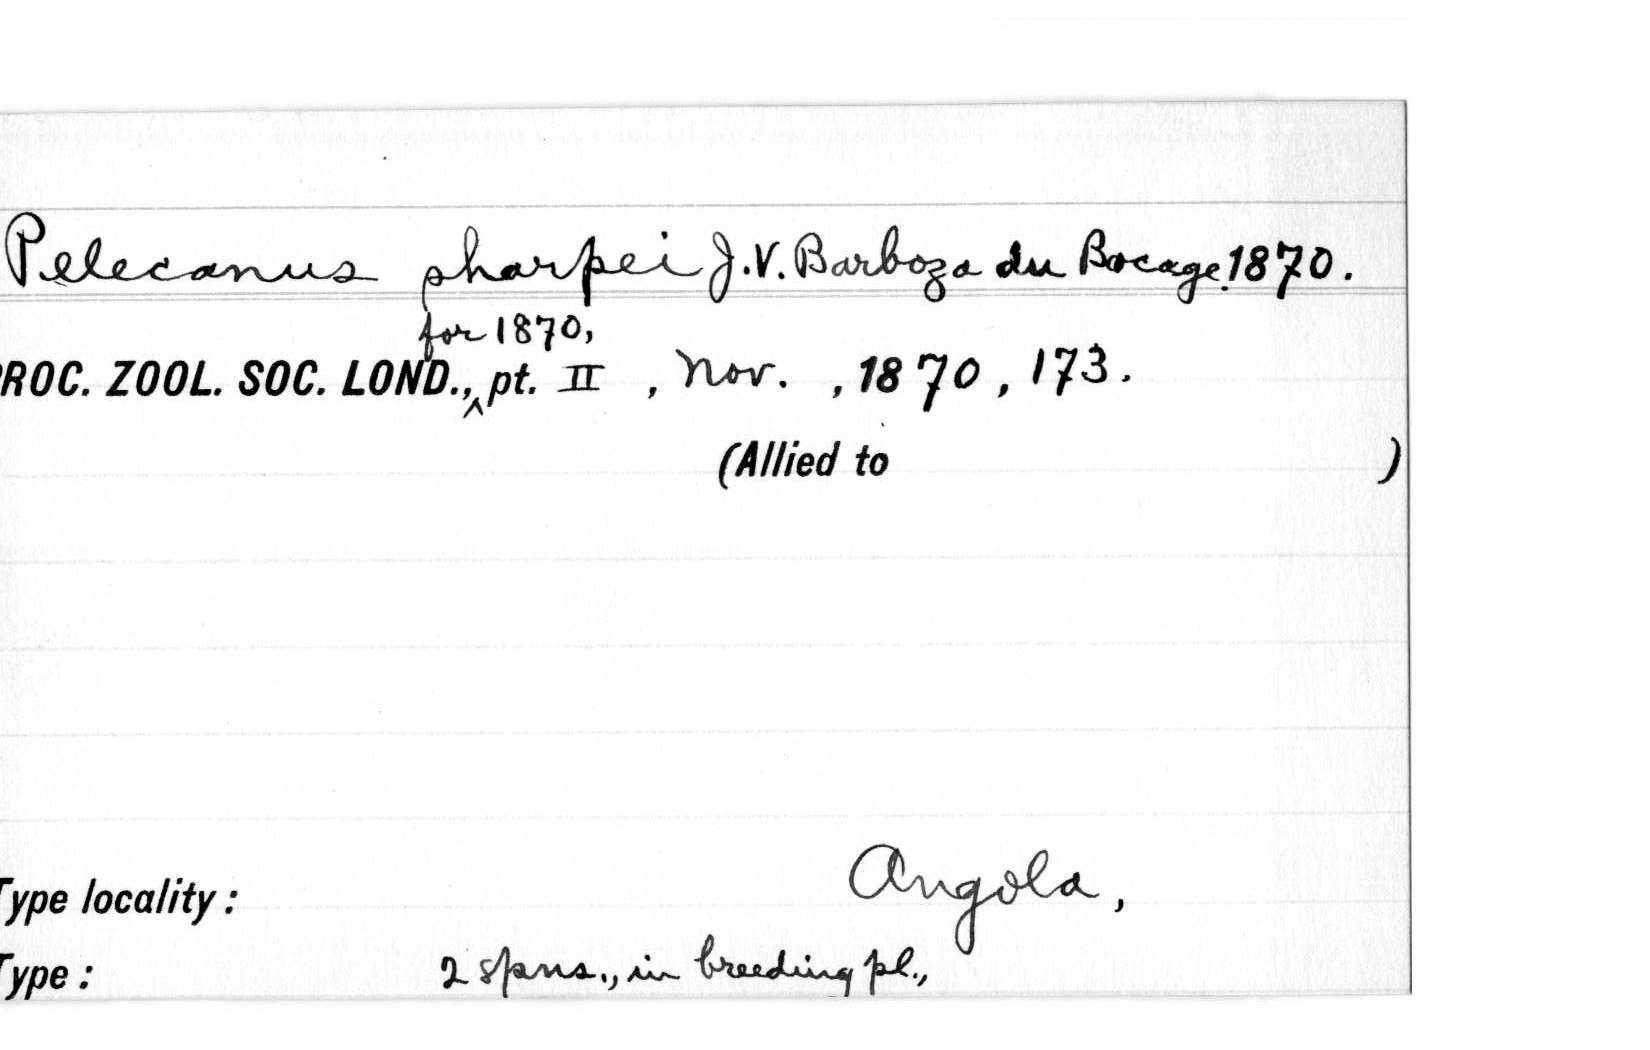 Pelecanus sharpei J.V. Barboza du Bocage, 1870.
for 1870,
ROC. ZOOL. SOC. LOND., ^ pt. II , Nov. , 1870 , 173.
(Allied to )
Type locality : Angola ,
Type : 2 spns., in breeding pl.,